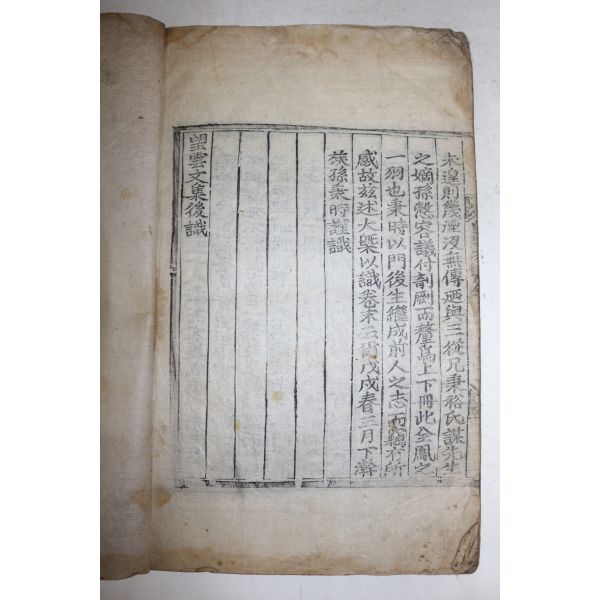 未遑則幾湮沒無傳廼與三從兄秉裕氏謀先生
之嫡孫慇容議付剞劂而釐爲上下冊此全鳳之
一羽也秉時以門後生繼成前人之志而竊有所
感故玆述大槩以識卷末云甯戊戌春三月下澣
族孫秉時謹識
望雲文集後識